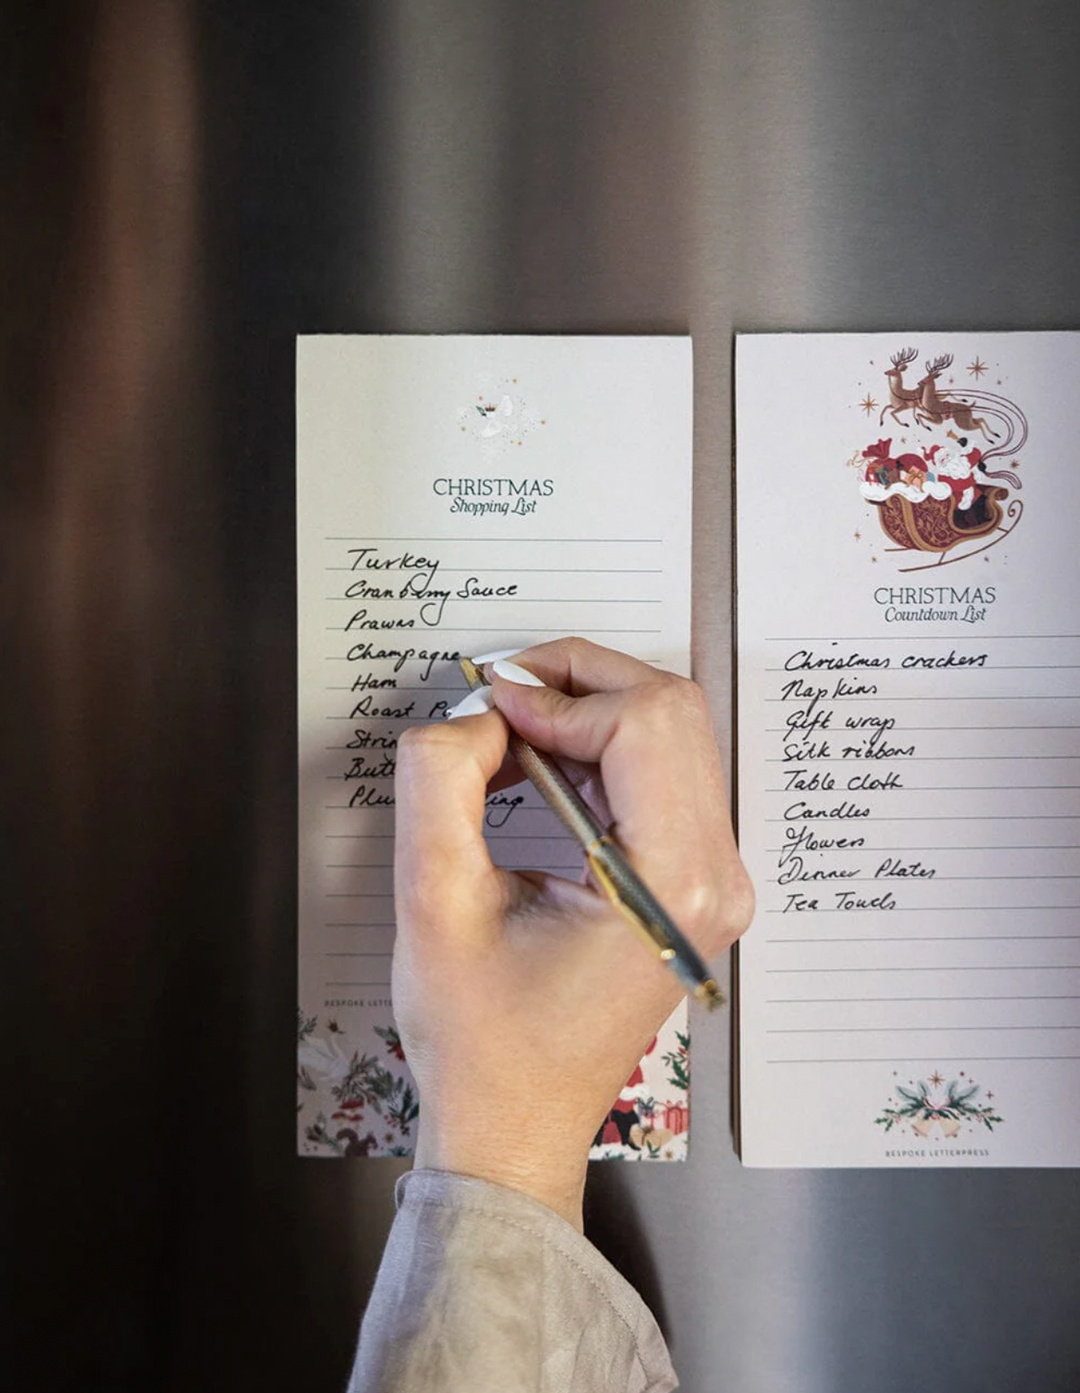 CHRISTMAS
Shopping List
Turkey
Cranberry Sauce
Prawns
Champagne
Ham
Roast
BESPOKE
CHRISTMAS
Countdown List
Christmas crackers
Napkins
Gift wrap
Silk ribbons
Table cloth
Candles
Flowers
Dinner Plates
Tea Towels
BESPOKE LETTERPRESS